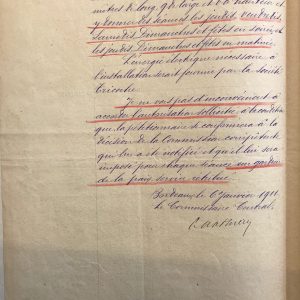 mètres de long, 9 de large et 6 de hauteur et
y donner des séances les jeudis, vendredis,
samedis, Dimanches et fêtes en soirée, et
les jeudis, Dimanches et fêtes en matinée.
L'énergie électrique nécessaire à
l'installation serait fournie par la Société
Je ne vois pas d'inconvénient à
accorder l'autorisation sollicitée à la condition
que la pétitionnaire se conformera à la
décision de la Commission compétente
qui lui a été notifiée et qu'il lui sera
imposé pour chaque séance un gardien
de la paix, service rétribué.
Bordeaux, le 6 Janvier 1911
Le Commissaire Central,